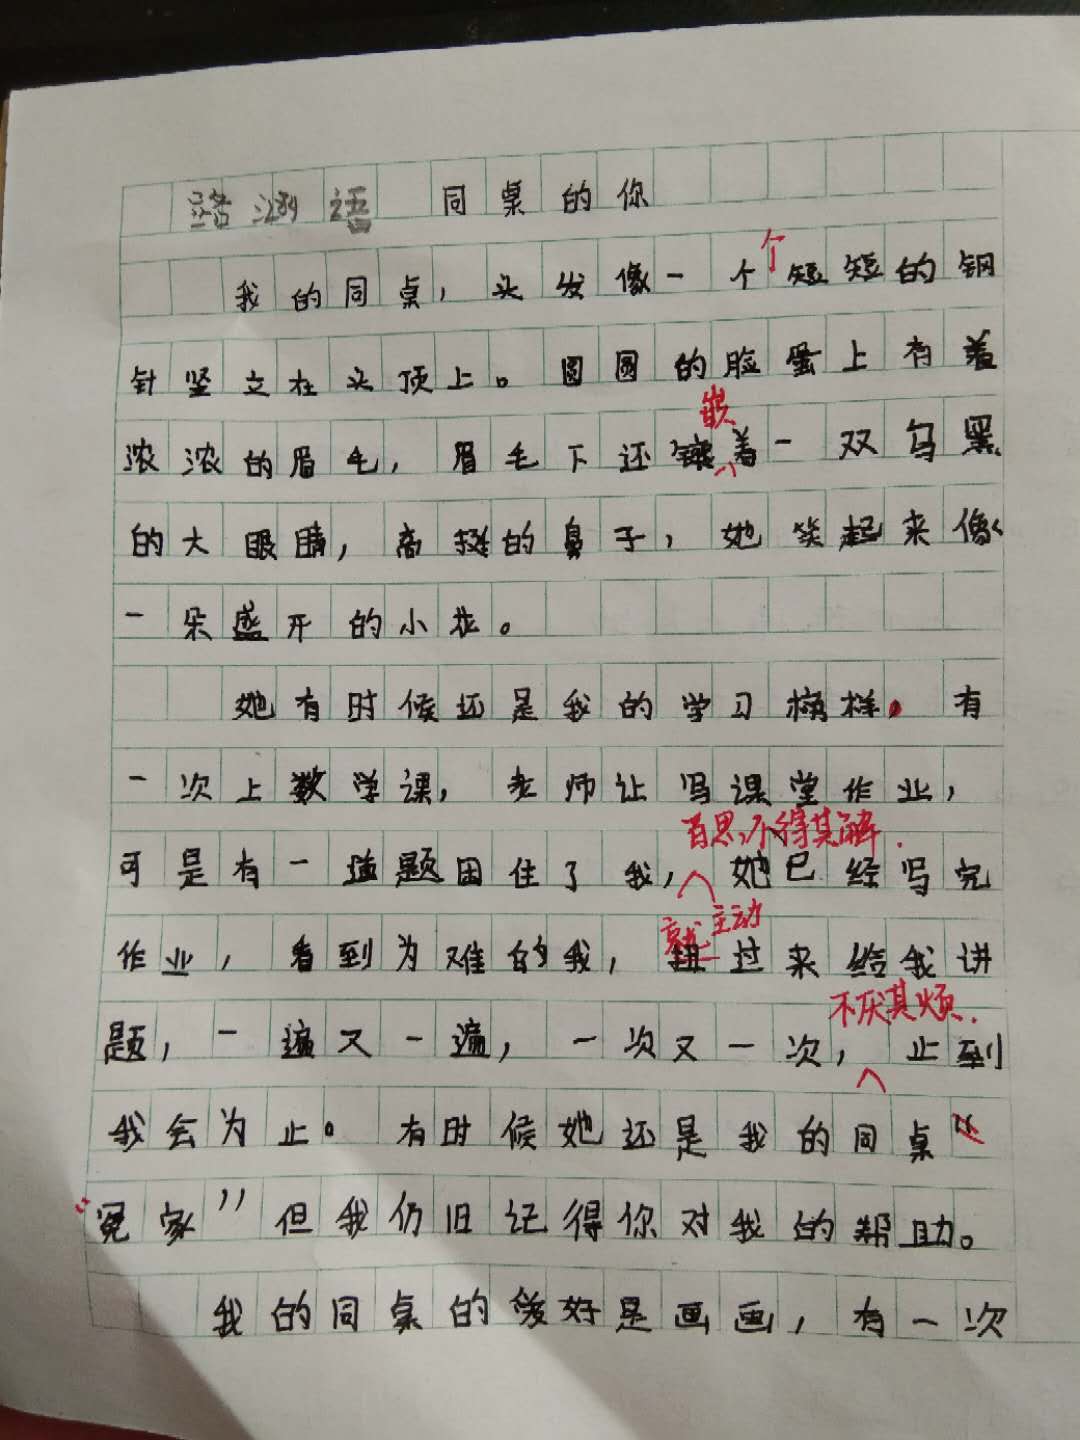 同桌的你
我的同桌，头发像一个个短短的钢
针坚立在头顶上。圆圆的脸蛋上有着
嵌
浓浓的眉毛，眉毛下还着一双乌黑
的大眼睛，高挺的鼻子，她笑起来像
一朵盛开的小花。
她有时候还是我的学习榜样。有
一次上数学课，老师让写课堂作业，
百思不得其解.
可是有一道题困住了我，她已经写完
就主动
作业，看到为难的我，扭过来给我讲
不厌其烦.
题，一遍又一遍，一次又一次，止到
我会为止。有时候她还是我的同桌“
“冤家”但我仍旧记得你对我的帮助。
我的同桌的爱好是画画，有一次